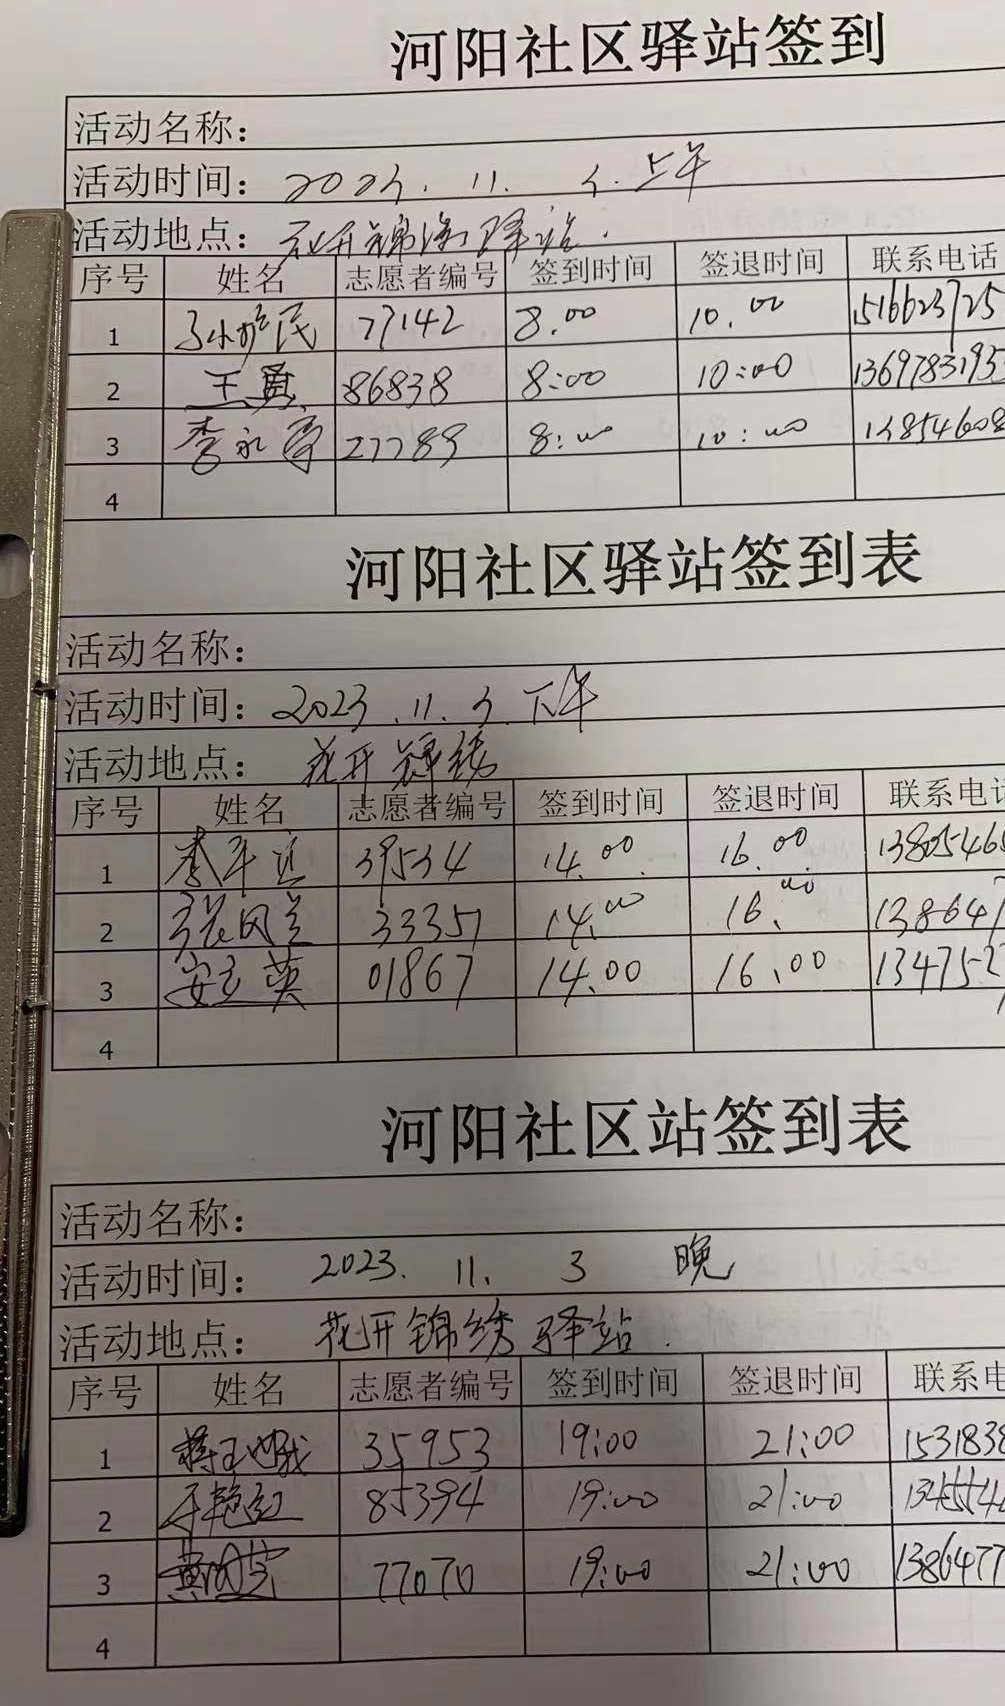 河阳社区驿站签到
活动名称：
活动时间：2023. 11. 3. 上午
活动地点：花开锦绣驿站.
序号 姓名 志愿者编号 签到时间 签退时间 联系电话
1 77142 8.00 10.00 1516623725
2 王勇 86838 8:00 10:00 1369783193
3 李永 27789 8:00 10:00 13854608
4
河阳社区驿站签到表
活动名称：
活动时间：2023.11.3.下午
活动地点：花开锦绣
序号 姓名 志愿者编号 签到时间 签退时间 联系电话
1 39534 14.00 16.00 13805465
2 张凤兰 33351 14.00 16.00 138641
3 安立英 01867 14.00 16.00 134752
4
河阳社区站签到表
活动名称：
活动时间：2023. 11. 3 晚
活动地点：花开锦绣驿站.
序号 姓名 志愿者编号 签到时间 签退时间 联系电
1 35953 19:00 21:00 1531838
2 于艳红 85394 19:00 21:00
3 77070 19:00 21:00 1386477
4